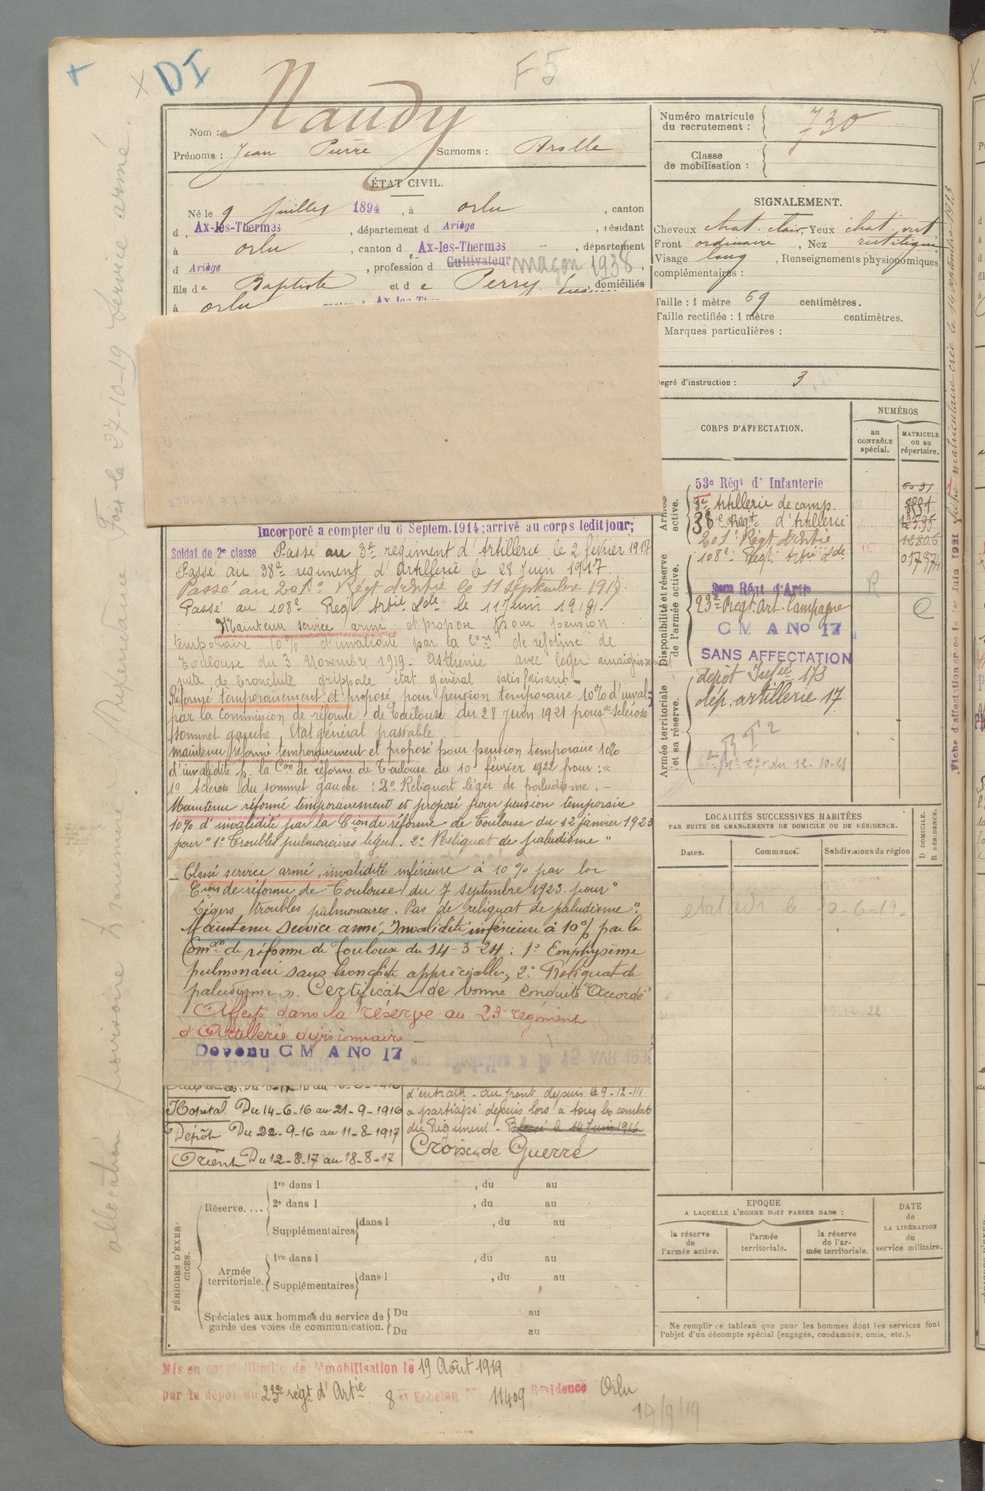 DI
F5
Nom : Naudy
Prénoms : Jean Pierre Surnoms :
ÉTAT CIVIL.
Né le 9 Juillet 1894, à Orlu, canton
d Ax-les-Thermes, département d Ariège, résidant
à Orlu, canton d Ax-les-Thermes, département
d Ariège, profession d Cultivateur maçon 1938
fils de Baptiste et de Perry, domiciliés
à Orlu
Numéro matricule du recrutement : 730
Classe de mobilisation :
SIGNALEMENT.
Cheveux chat. clair, Yeux chat. vert
Front ordinaire, Nez rectiligne
Visage long, Renseignements physionomiques
complémentaires :
Taille : 1 mètre 69 centimètres.
Taille rectifiée : 1 mètre centimètres.
Marques particulières :
egré d'instruction : 3
CORPS D'AFFECTATION.
NUMÉROS
au CONTRÔLE spécial.
MATRICULE ou au répertoire.
active.
53e Régt d'Infanterie
3e Artillerie de camp.
38e Régt d'Artillerie
201e Régt d'Artie
108e Régt Artie Lde
Disponibilité et réserve de l'armée active.
23e Regt Art. Campagne
R
C
C M A No 17
SANS AFFECTATION
Armée territoriale et sa réserve.
dépôt Infie 173
dép. artillerie 17
Incorporé à compter du 6 Septem. 1914; arrivé au corps ledit jour;
Soldat de 2e classe Passé au 3e régiment d'Artillerie le 2 février 1917
Passé au 38e régiment d'Artillerie le 28 Juin 1917.
Passé au 201e Régt d'Artie le 11 Septembre 1918.
Passé au 108e Régt Artie Lde le 11 Juin 1919.
Maintenu service armé et proposé pour pension
temporaire 10% d'invalidité par la Con de réforme de
Toulouse du 3 Novembre 1919. Asthénie avec léger amaigrissem
suite de bronchite grippale état général satisfaisant
Réformé temporairement et proposé pour pension temporaire 10% d'inval
par la Commission de réforme de Toulouse du 28 Juin 1921 pour sclérose
sommet gauche Etat général passable
maintenu réformé temporairement et proposé pour pension temporaire 10%
d'invalidité p. la Con de réforme de Toulouse du 10 février 1922 pour :
1° sclérose du sommet gauche : 2° Reliquat léger de paludisme. -
Maintenu réformé temporairement et proposé pour pension temporaire
10% d'invalidité par la Cion de réforme de Toulouse du 12 janvier 1923
pour "1° Troubles pulmonaires légers. 2° Reliquat de paludisme"
Classé service armé, invalidité inférieure à 10% par la
Cion de réforme de Toulouse du 7 septembre 1923 pour "
Légers troubles pulmonaires. Pas de reliquat de paludisme".
Maintenu Service armé, Invalidité inférieure à 10% par la
Comon de réforme de Toulouse du 14-3-24 : 1° Emphysème
pulmonaire sans bronchite appréciable, 2° Reliquat de
paludisme ". Certificat de bonne conduite "Accordé"
Affecté dans la réserve au 23e régiment
d'Artillerie divisionnaire
Devenu C M A No 17
Hopital Du 14-6-16 au 21-9-1916
Dépôt Du 22-9-16 au 11-8-1917
Orient Du 12-8-17 au 18-8-17
au front depuis le 9-12-14
a participé depuis lors à tous les combats
du Régiment. - Blessé le 14 Juin 1916.
Croix de Guerre
LOCALITÉS SUCCESSIVES HABITÉES
PAR SUITE DE CHANGEMENTS DE DOMICILE OU DE RÉSIDENCE.
Dates. Communes. Subdivisions de région
D DOMICILE. R RÉSIDENCE.
PÉRIODES D'EXERCICES.
Réserve.... 1re dans l , du au
2e dans l , du au
Supplémentaires dans l , du au
Armée territoriale. 1re dans l , du au
Supplémentaires dans l , du au
Spéciales aux hommes du service de garde des voies de communication. Du au
Du au
EPOQUE
A LAQUELLE L'HOMME DOIT PASSER DANS :
la réserve de l'armée active.
l'armée territoriale.
la réserve de l'armée territoriale.
DATE de LA LIBÉRATION du service militaire.
Ne remplir ce tableau que pour les hommes dont les services font
l'objet d'un décompte spécial (engagés, condamnés, omis, etc.).
Mis en congé illimité de démobilisation le 19 Août 1919
par le dépôt du 23e régt d'Artie 8e Echelon No 11409 Résidence Orlu
19/9/19